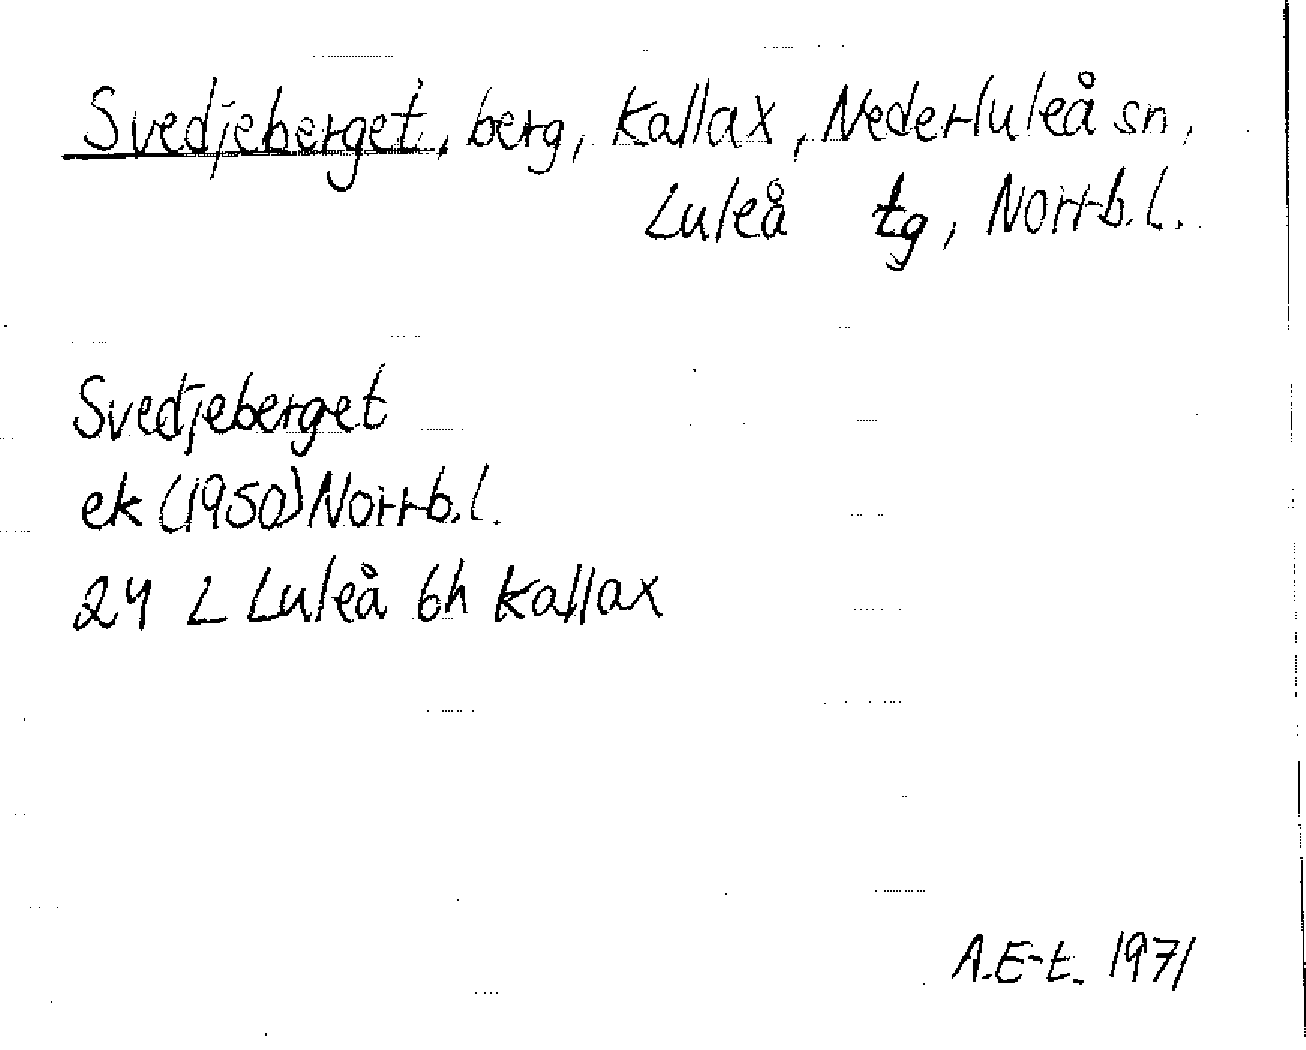 Svedjeberget, berg, Kallax, Nederluleå sn,
Luleå tg, Norrb.l.
Svedjeberget
ek (1950) Norrb.l.
24 L Luleå 6h Kallax
A.E-t. 1971